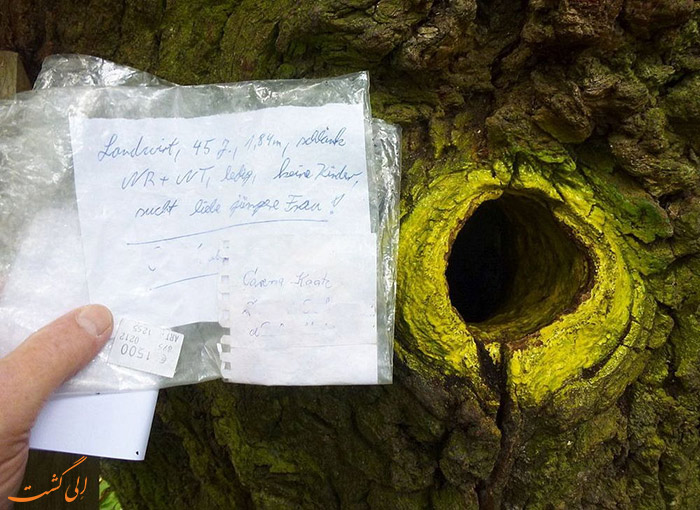 Landwirt, 45 J., 1,84m, schlank
NR + NT, ledig, keine Kinder,
sucht liebe jüngere Frau!
Carena
€ 1500
0212
ART. 1255
الی گشت